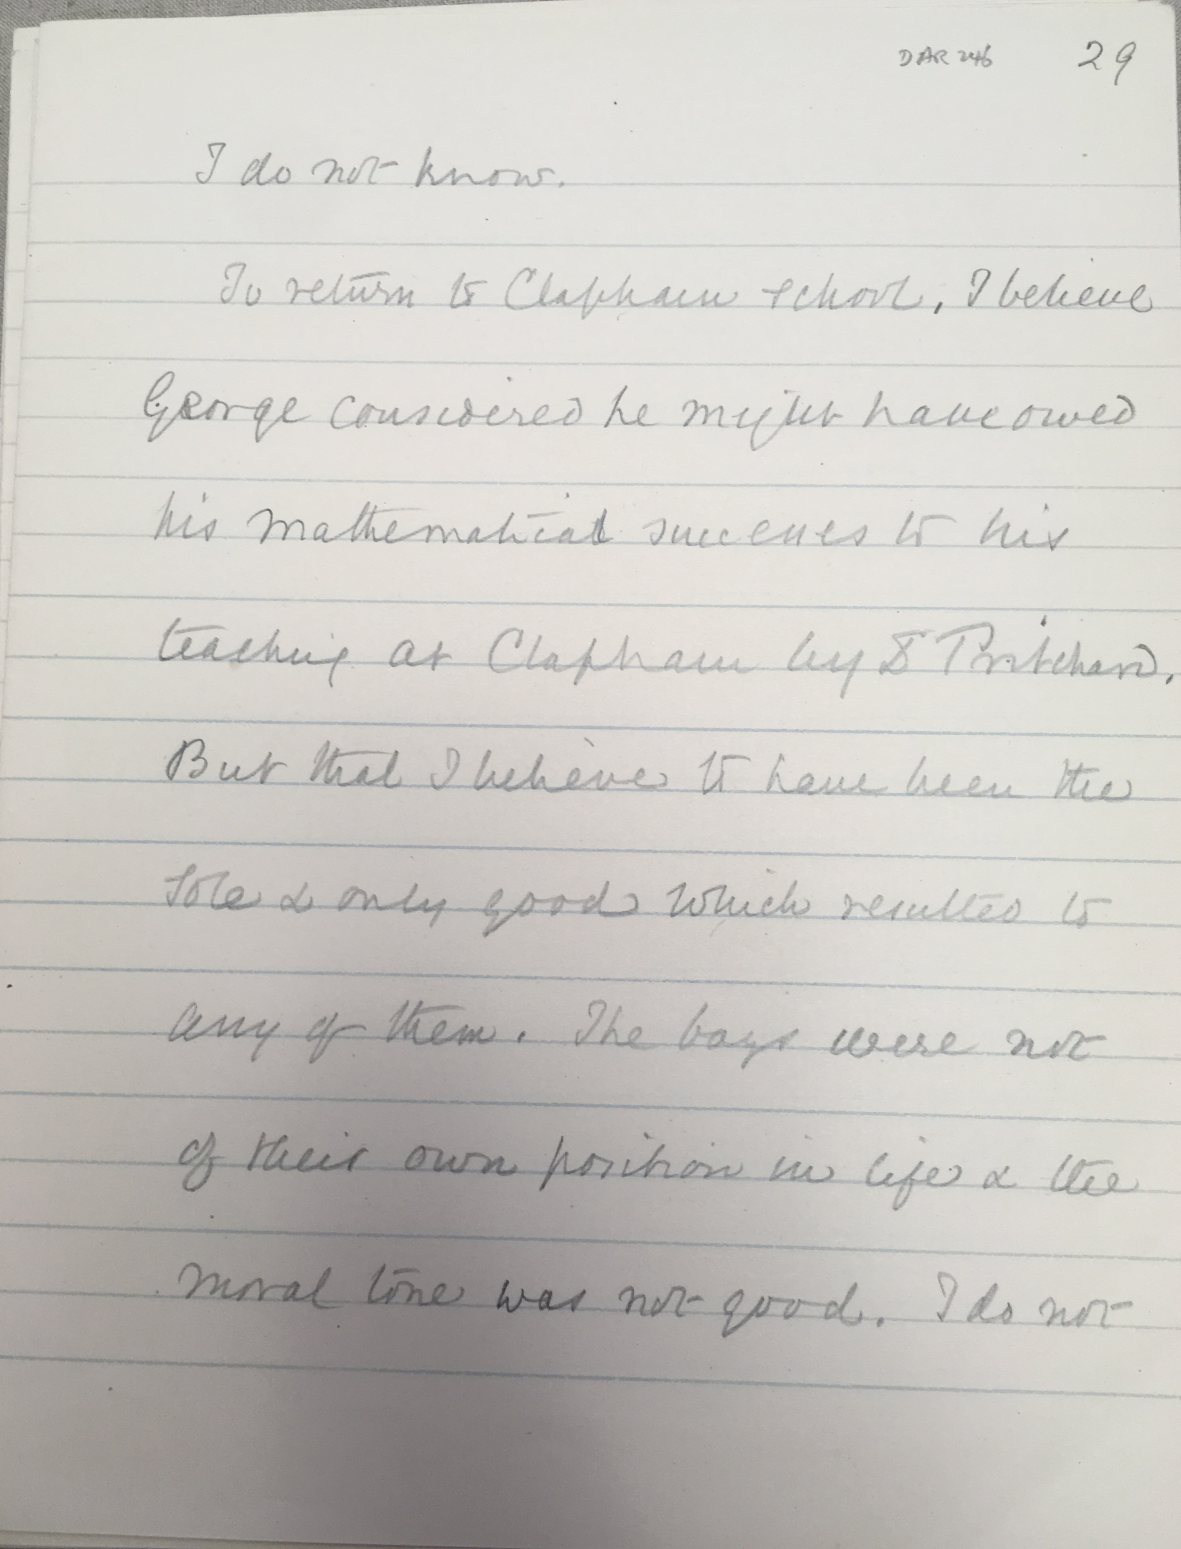 DAR 246 29
I do not know.
To return to Clapham School, I believe
George considered he might have owed
his mathematical successes to his
teaching at Clapham by Dr Pritchard.
But that I believe to have been the
sole & only good which resulted to
any of them. The boys were not
of their own position in life & the
moral tone was not good. I do not